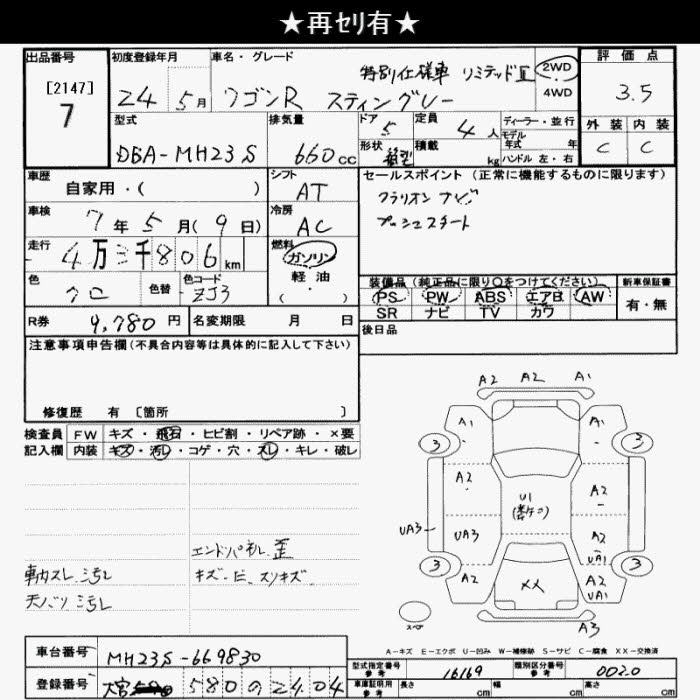 ★再ｾﾘ有★
出品番号
[2147]
7
初度登録年月
24 5月
車名・グレード
特別仕様車 リミテッドⅡ
ワゴンR スティングレー
2WD
4WD
評価点
3.5
外装 内装
C C
型式
DBA-MH23S
排気量
660cc
ドア
5
定員
4人
形状
積載
kg
ディーラー・並行
モデル
年式 年
ハンドル 左・右
車歴
自家用・( )
シフト
AT
セールスポイント(正常に機能するものに限ります)
クラリオン ナビ
プッシュスタート
車検
7年5月(9日)
冷房
AC
走行
4万三千806km
燃料
ガソリン
軽油
・( )
色
クロ
色替
色コード
ZJ3
装備品(純正品に限り〇をつけてください)
PS PW ABS エアB AW
SR ナビ TV カワ
新車保証書
有・無
R券
9,780円
名変期限 月 日
後日品
注意事項申告欄(不具合内容等は具体的に記入して下さい)
修復歴 有 [箇所 ]
検査員
記入欄
FW キズ・飛石・ヒビ割・リペア跡・×要
内装 キズ・汚レ・コゲ・穴・スレ・キレ・破レ
エンドパネル 歪
車内スレ 汚レ
キズ・ヒ、スリキズ
天バリ 汚レ
A2 A2 A1
A1 A1
3 3
A2 A2
U1
UA3 UA3 A2
UA1
3 3
A2 XX A2
UA1
スペア
A3
A-キズ E-エクボ U-凹み W-補修跡 S-サビ C-腐食 XX-交換済
車台番号
MH23S-669830
登録番号
大宮 580 の 2404
型式指定番号
参考
16169
類別区分番号
参考
0020
車庫証明用
参考
長さ cm 幅 cm 高さ cm